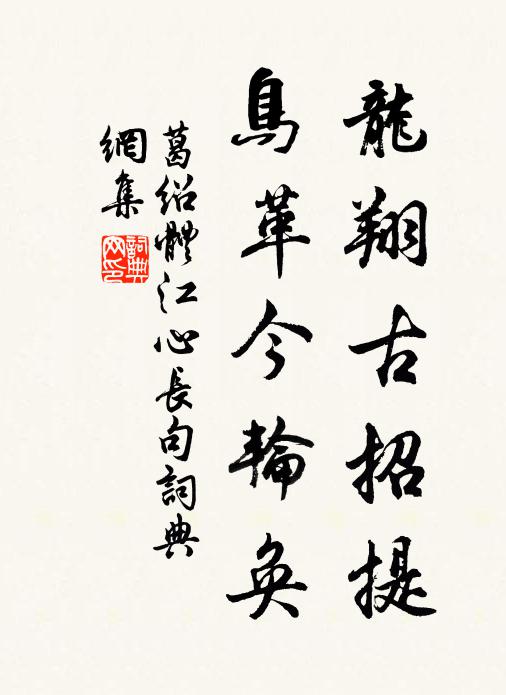 龍翔古招提
鳥革今輪奐
葛紹體江心長句詞典
網集
詞典
网印